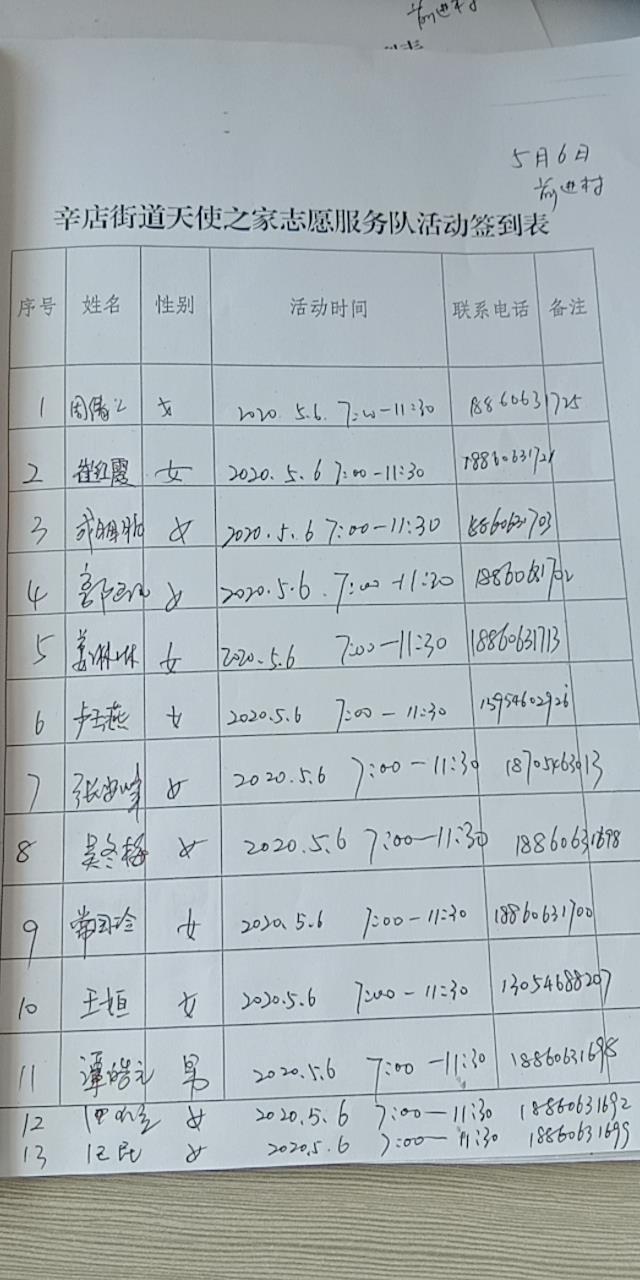 前进村
5月6日
前进村
辛店街道天使之家志愿服务队活动签到表
序号 姓名 性别 活动时间 联系电话 备注
1 女 2020.5.6. 7:00-11:30 18860631725
2 崔红霞 女 2020.5.6 7:00-11:30
3 女 2020.5.6 7:00-11:30
4 女 2020.5.6. 7:00-11:20
5 姜琳琳 女 2020.5.6 7:00-11:30 18860631713
6 步玉燕 女 2020.5.6 7:00-11:30 15954602926
7 女 2020.5.6 7:00-11:30
8 吴冬梅 女 2020.5.6 7:00-11:30 18860631698
9 女 2020.5.6 7:00-11:30 18860631700
10 王姮 女 2020.5.6 7:00-11:30 13054688207
11 谭皓元 男 2020.5.6 7:00-11:30 18860631698
12 女 2020.5.6 7:00-11:30 18860631692
13 女 2020.5.6 7:00-11:30 18860631699